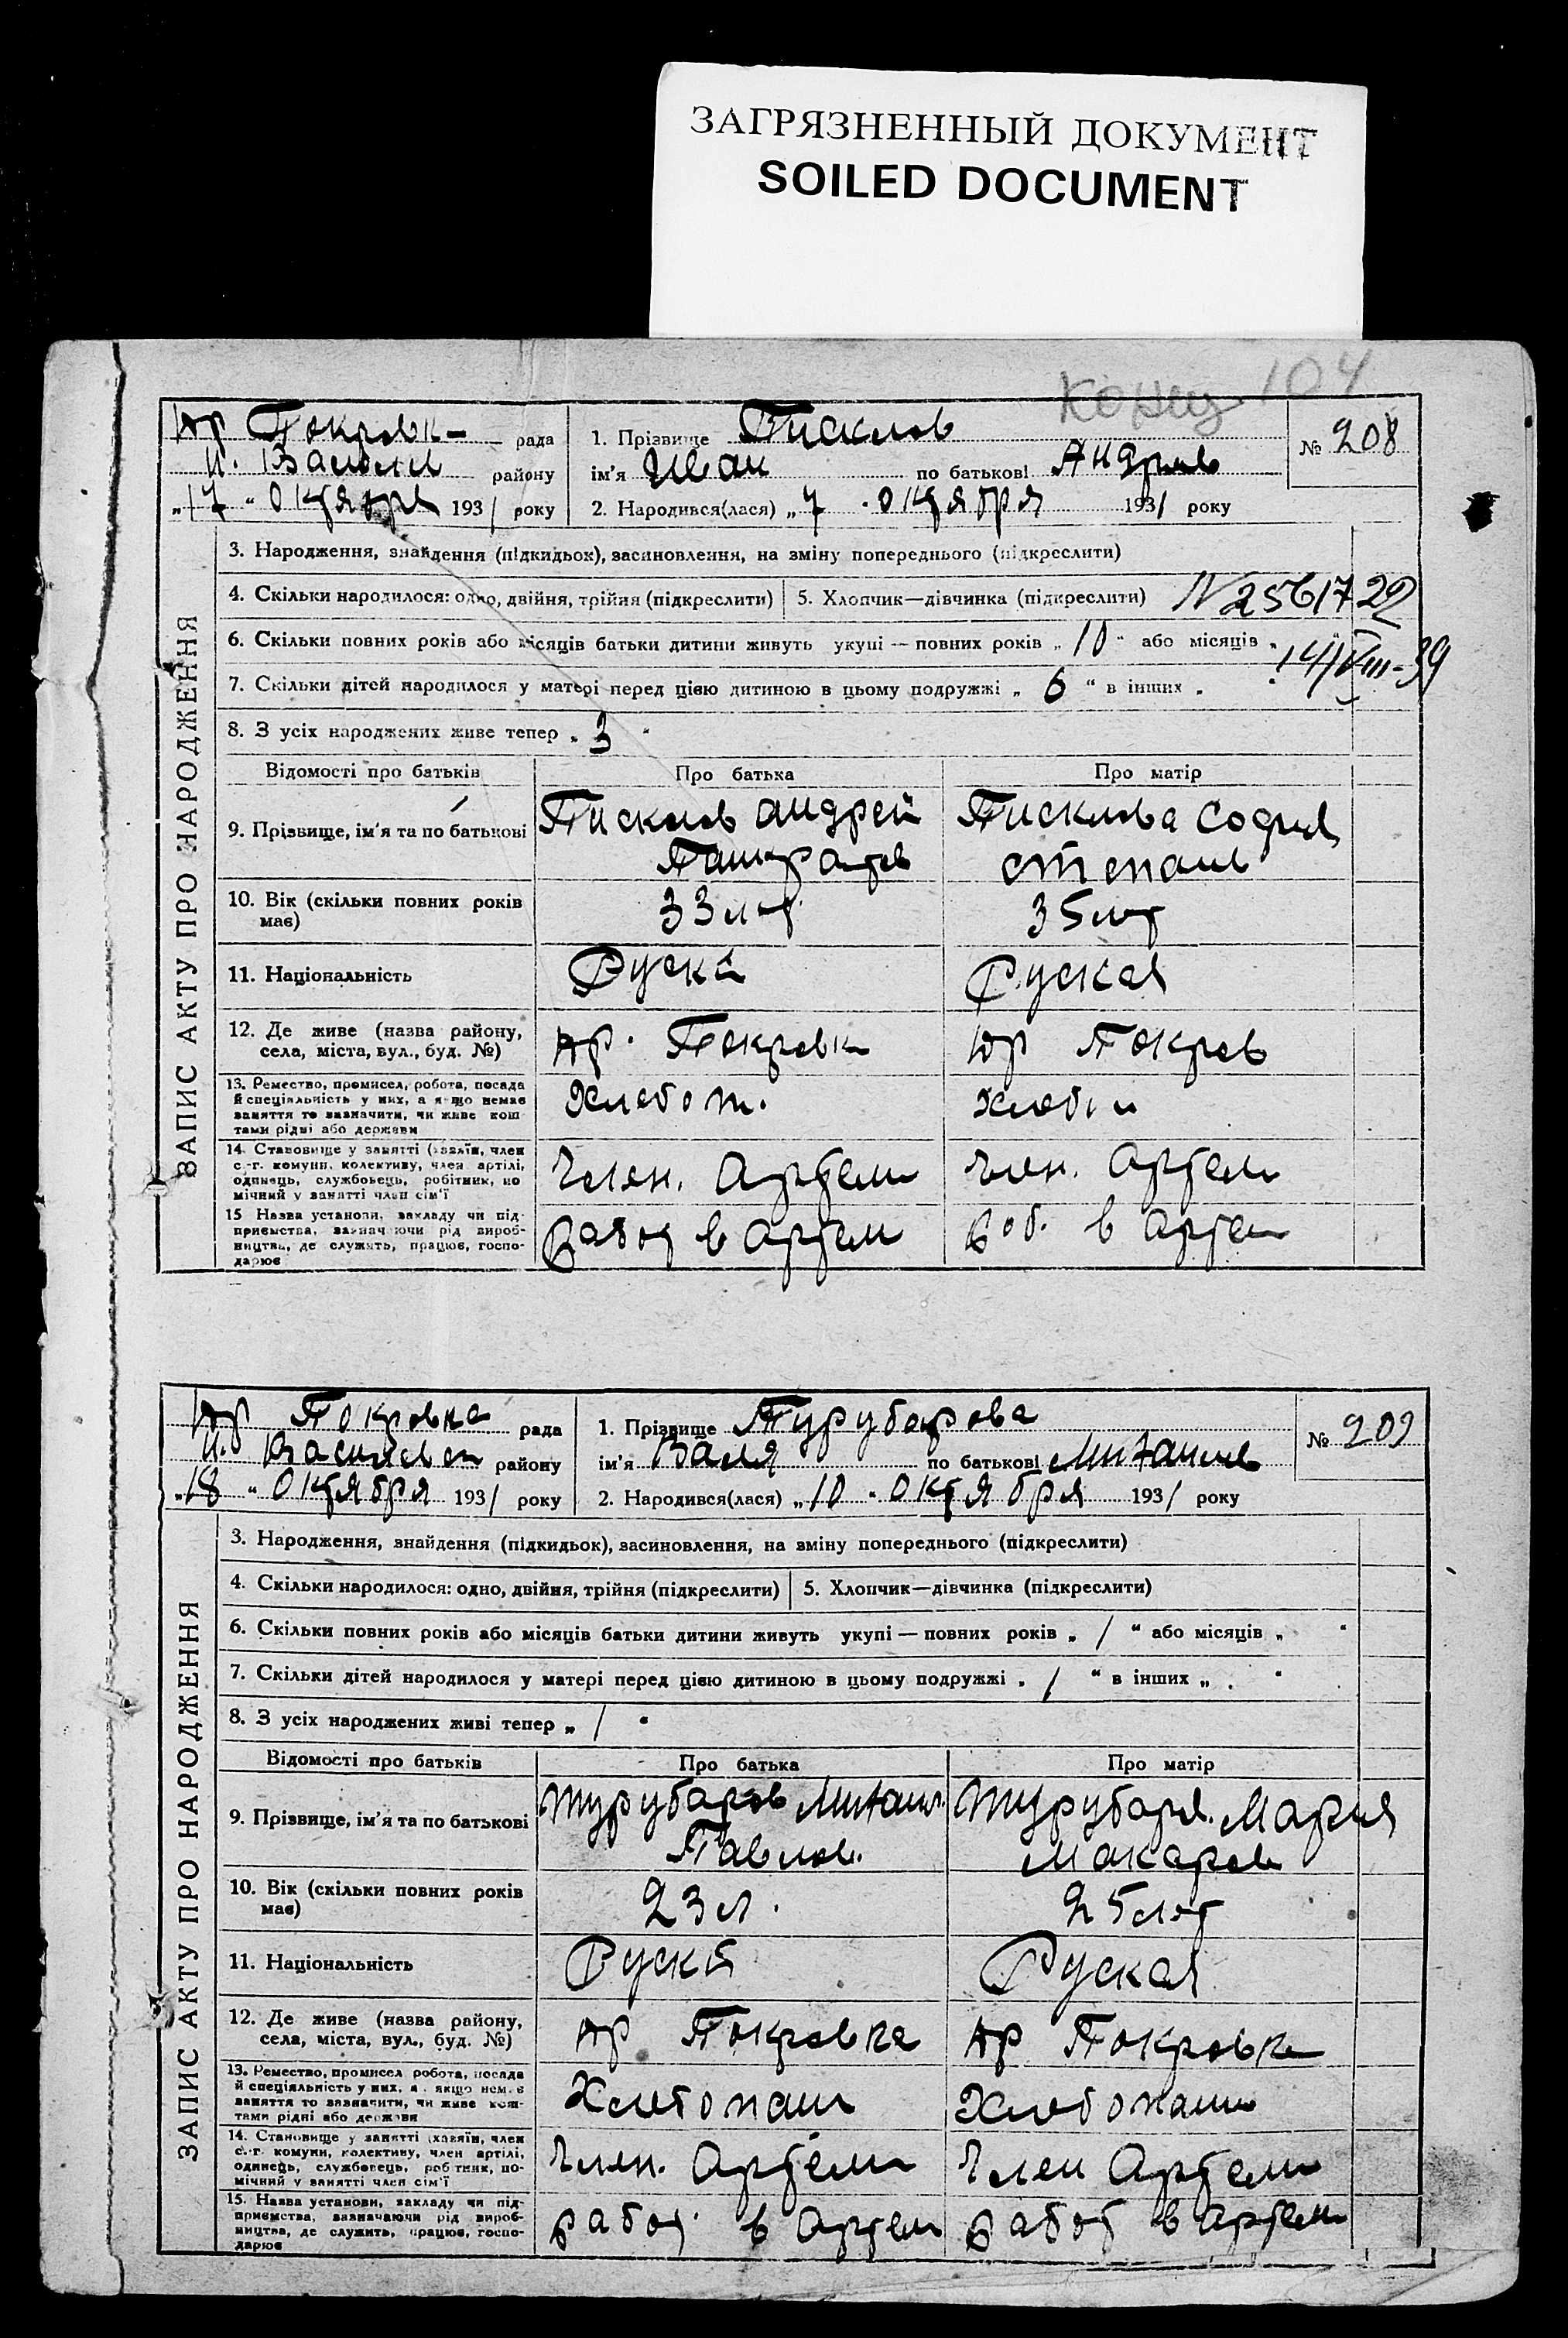 ЗАГРЯЗНЕННЫЙ ДОКУМЕНТ
SOILED DOCUMENT
Конец 104
Нр Покровк- рада
районy
„17 " октября 1931 року
1. Прізвище
ім'я Иван по батькові Андрив
2. Народився(лася) „7 " октября 1931 року
№ 208
ЗАПИС АКТУ ПРО НАРОДЖЕННЯ
3. Народження, знайдення (підкидьок), засиновлення, на зміну попереднього (підкреслити)
4. Скільки народилося: одно, двійня, трійня (підкреслити)
5. Хлопчик—дівчинка (підкреслити)
6. Скільки повних років або місяців батьки дитини живуть укупі — повних років „ 10 " або місяців „
14/VIII-39
7. Скільки дітей народилося у матері перед цією дитиною в цьому подружжі „ 6 " в інших „
8. З усіх народжених живе тепер „ 3 "
Відомості про батьків
Про батька
Про матір
9. Прізвище, ім'я та по батькові
Андрей
София
Степан
10. Вік (скільки повних років має)
33 лет
35 лет
11. Національність
Руска
Руская
12. Де живе (назва району, села, міста, вул., буд. №)
Нр. Покровк
Нр Покров
13. Ремество, промисел, робота, посада
й спеціяльність у них, а якщо немає
заняття то зазначити, чи живе кош-
тами рідні або держави
Хлебоп.
14. Становище у занятті (хазяїн, член
с.-г. комуни, колективу, член артілі,
одинець, службовець, робітник, по-
мічний у занятті член сім'ї
Член. Артели
Член. Артели
15 Назва установи, закладу чи під-
приємства, зазначаючи рід вироб-
ництва, де служить, працює, госпо-
дарює
Работ в Артели
Роб. в Артел
Нр Покровка рада
району
„18 " октября 1931 року
1. Прізвище Турубарова
ім'я Валя по батькові Михаилов
2. Народився(лася) „10 " октября 1931 року
№ 209
ЗАПИС АКТУ ПРО НАРОДЖЕННЯ
3. Народження, знайдення (підкидьок), засиновлення, на зміну попереднього (підкреслити)
4. Скільки народилося: одно, двійня, трійня (підкреслити)
5. Хлопчик—дівчинка (підкреслити)
6. Скільки повних років або місяців батьки дитини живуть укупі — повних років „ 1 " або місяців „ "
7. Скільки дітей народилося у матері перед цією дитиною в цьому подружжі „ 1 " в інших „ "
8. З усіх народжених живі тепер „ 1 "
Відомості про батьків
Про батька
Про матір
9. Прізвище, ім'я та по батькові
Турубаров Михаил.
Павлов.
Турубаря. Мария
Макаров
10. Вік (скільки повних років має)
23 л.
25 лет
11. Національність
Руский
Руская
12. Де живе (назва району, села, міста, вул., буд. №)
Нр Покровка
Нр Покровка
13. Ремество, промисел робота, посада
й спеціяльність у них, а якщо немає
заняття то зазначити, чи живе кош-
тами рідні або держави
Хлебопаш
Хлебопаш
14. Становище у занятті (хазяїн, член
с.-г. комуни, колективу, член артілі,
одинець, службовець, робітник, по-
мічний у занятті член сім'ї
Член. Артели
Член Артели
15. Назва установи, закладу чи під-
приємства, зазначаючи рід вироб-
ництва, де служить, працює, госпо-
дарює
Работ в Артели
Работ в Артели